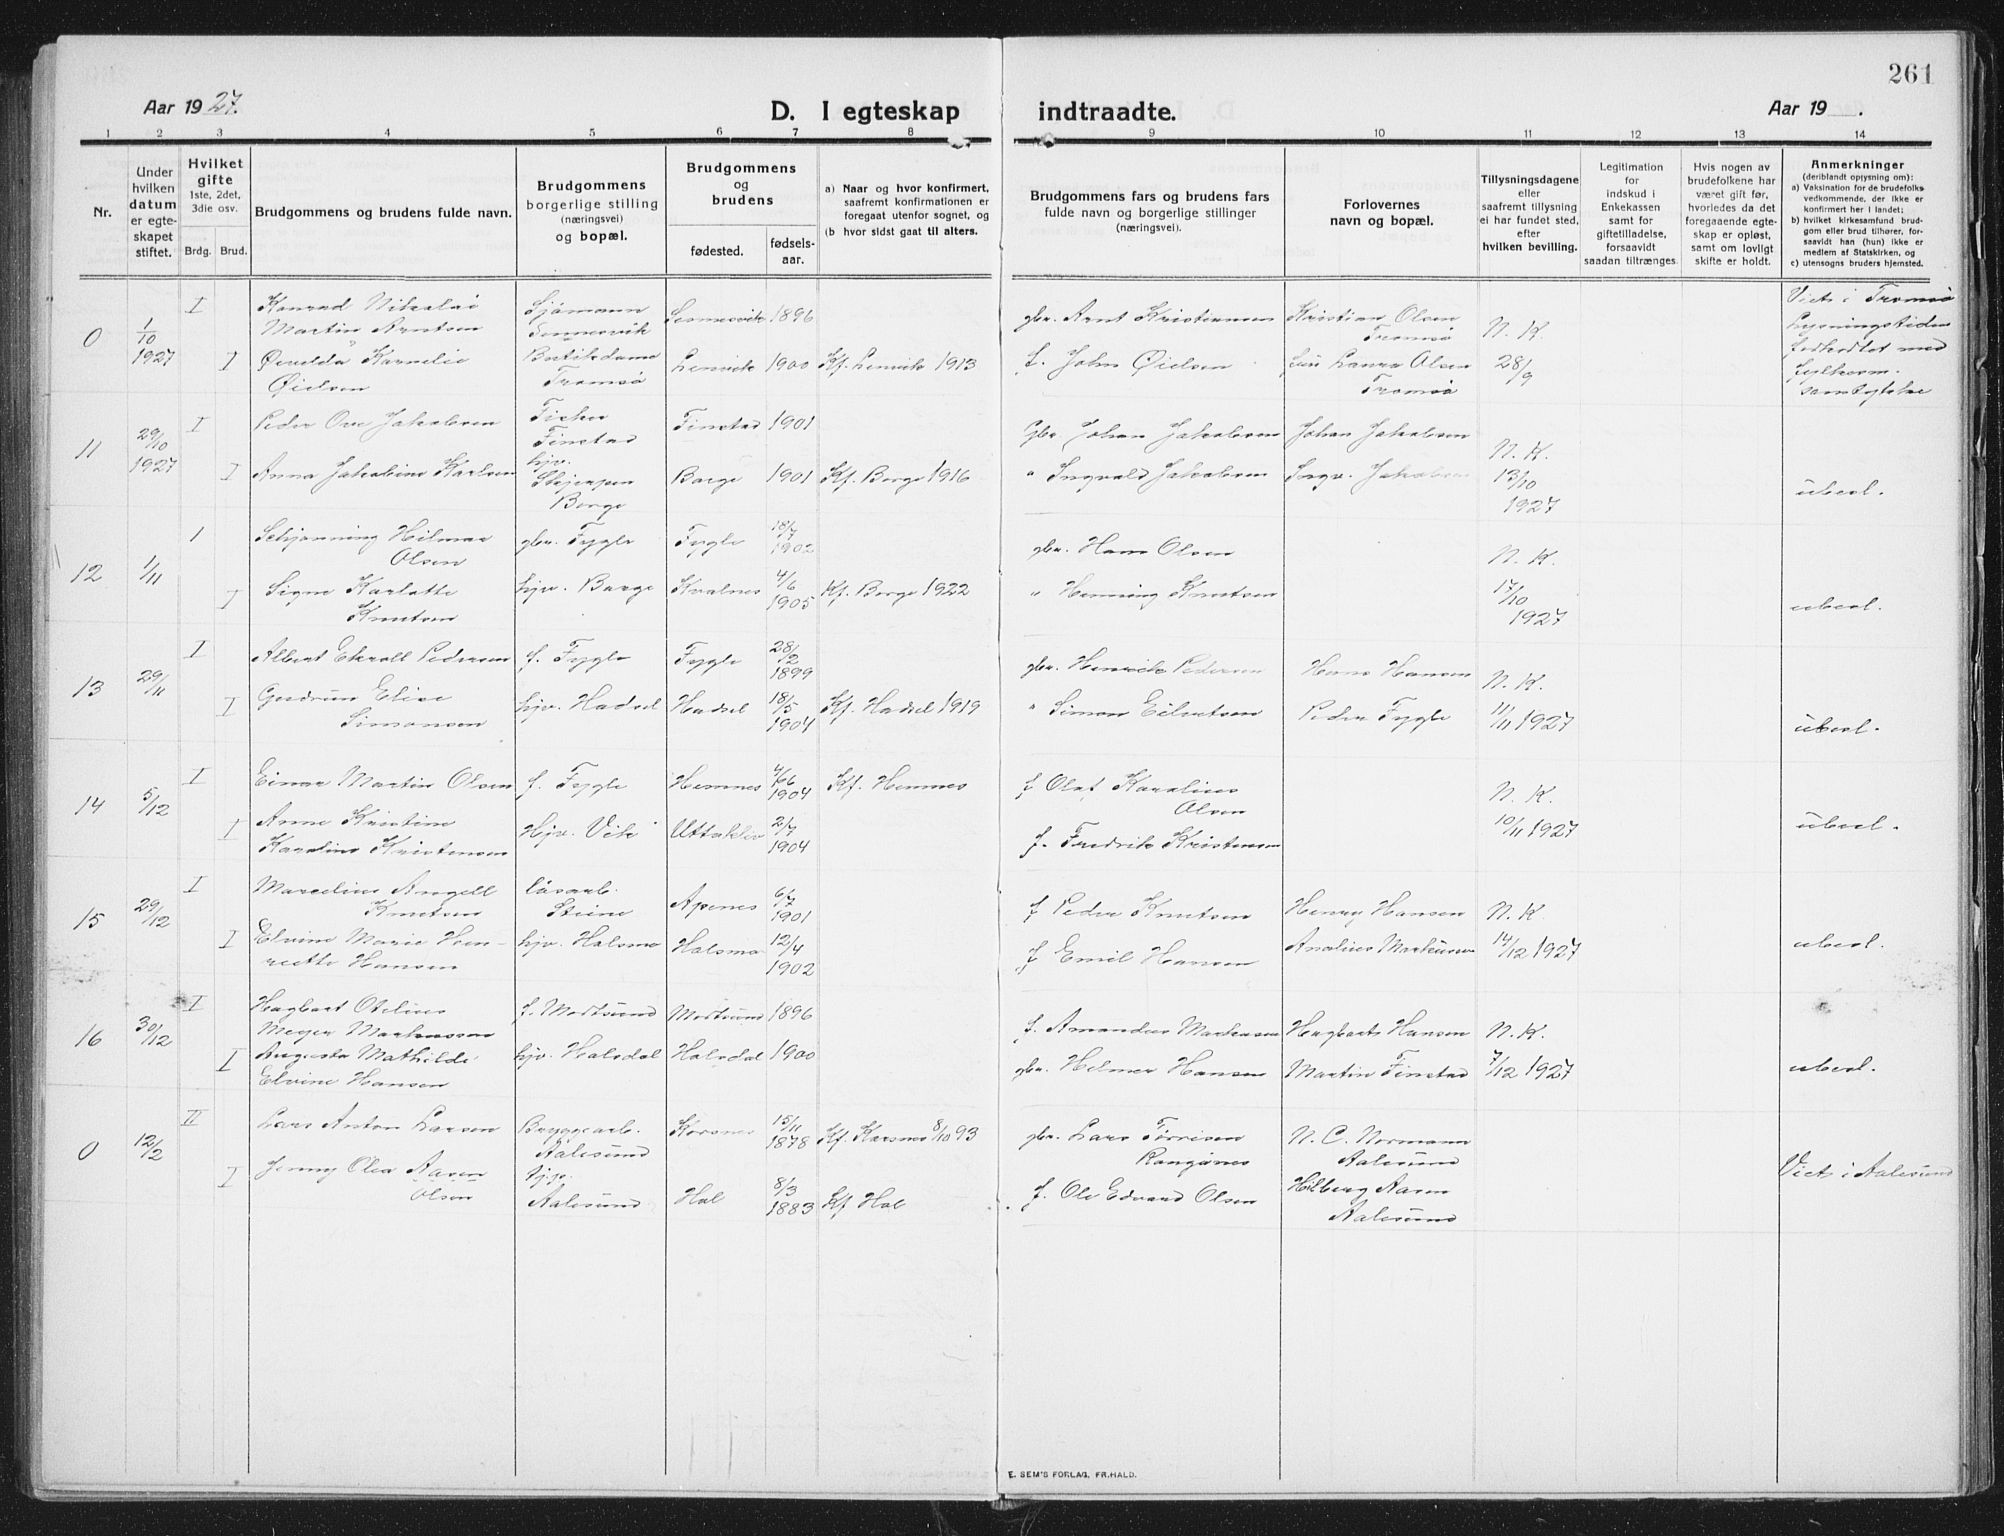 261
Aar 1927.
D. I egteskap
indtraadte.
Aar 19   .
1 2 3 4 5 6 7 8 9 10 11 12 13 14
Nr.
Under hvilken datum er egteskapet stiftet.
Hvilket gifte
1ste, 2det, 3die osv.
Brdg. Brud.
Brudgommens og brudens fulde navn.
Brudgommens borgerlige stilling (næringsvei) og bopæl.
Brudgommens og brudens
fødested.
fødselsaar.
a) Naar og hvor konfirmert, saafremt konfirmationen er foregaat utenfor sognet, og
(b hvor sidst gaat til alters.
Brudgommens fars og brudens fars fulde navn og borgerlige stillinger (næringsvei).
Forlovernes navn og bopæl.
Tillysningsdagene eller saafremt tillysning ei har fundet sted, efter hvilken bevilling.
Legitimation for indskud i Enkekassen samt for giftetilladelse, forsaavidt saadan tiltrænges.
Hvis nogen av brudefolkene har været gift før, hvorledes da det foregaaende egteskap er opløst, samt om lovligt skifte er holdt.
Anmerkninger
(deriblandt opjysning om):
a) Vaksination for de brudefolks vedkommende, der ikke er konfirmert her i landet;
b) hvilket kirkesamfund brudgom eller brud tilhører, forsaavidt han (hun) ikke er medlem af Statskirken, og
c) utensogns bruders hjemsted.
0 1/10 1927
I Konrad Nikolai Martin Arntsen Sjömann Sennesvik Sennesvik 1896 gbr. Arnt Kristiansen Kristian Olsen Tromsö N. K. Viet i Tromsö
I Karnelie Öielsen Tromsö Lenvik 1900 Kf. Lenvik 1913 f. John Öielsen Laura Olsen Tromsö 28/9 Lysningstiden med samtykke
11 29/10 1927
I Peder Ove Jakobsen Fisker Finstad Finstad 1901 Gbr. Johan Jakobsen Johan Jakobsen N. K.
I Anna Jakobine Karlsen hjv. Borge Borge 1901 Kf. Borge 1916 " Ingvald Jakobsen Ingv. Jakobsen 13/10 1927 ubesl.
12 1/11
1 Schjønning Hilmar Olsen gbr. Fygle Fygle 18/7 1902 gbr. Hans Olsen N. K.
I Signe Karlotte Knutsen hjv. Borge Kvalnes 4/6 1905 Kf. Borge 1922 " Henning Knutsen 17/10 1927 ubesl.
13 29/11
I Albert Ekroll Pedersen f. Fygle Fygle 28/2 1899 gbr. Henrik Pedersen Hans Hansen N. K.
I Gudrun Elise Simonsen hjv. Hadsel Hadsel 18/5 1904 Kf. Hadsel 1919 " Simon Eilertsen Peder Fygle 11/11 1927 ubesl.
14 5/12
I Einar Martin Olsen f. Fygle Hemnes 1904 Kf. Hemnes f Olaf Karelius Olsen N. K.
I Anne Kristine Karoline Kristensen Hjv. Vik Uttakleiv 2/7 1904 f. Fredrik Kristensen 10/11 1927 ubesl.
15 29/12
I Marcelius Angell Knutsen lösarb. Steine Apenes 6/7 1901 f Peder Knutsen Henry Hansen N. K.
I Elvine Marie Henriette Hansen hjv. Halsmo Halsmo 12/4 1902 f Emil Hansen Analius Markussen 14/12 1927 ubesl.
16 30/12
I Hagbart Otelius Meyer Markussen f. Mortsund Mortsund 1896 f. Amandus Markussen Hagbart Hansen N. K.
I Augusta Mathilde Elvine Hansen hjv. Halsdal Halsdal 1900 gbr. Helmer Hansen Martin Finstad 7/12 1927 ubesl.
0 12/2
II Lars Anton Larsen Bryggearb. Aalesund Korsnes 15/11 1878 Kf. Karsnes 8/10 93 gbr. Lars Tørrisen N. C. Normann Aalesund
I Jenny Olea Aasen Olsen Aalesund Hol 8/3 1883 Kf Hol f. Ole Edvard Olsen Hilberg Aasen Aalesund Viet i Aalesund
E. SEM'S FORLAG, FR.HALD.